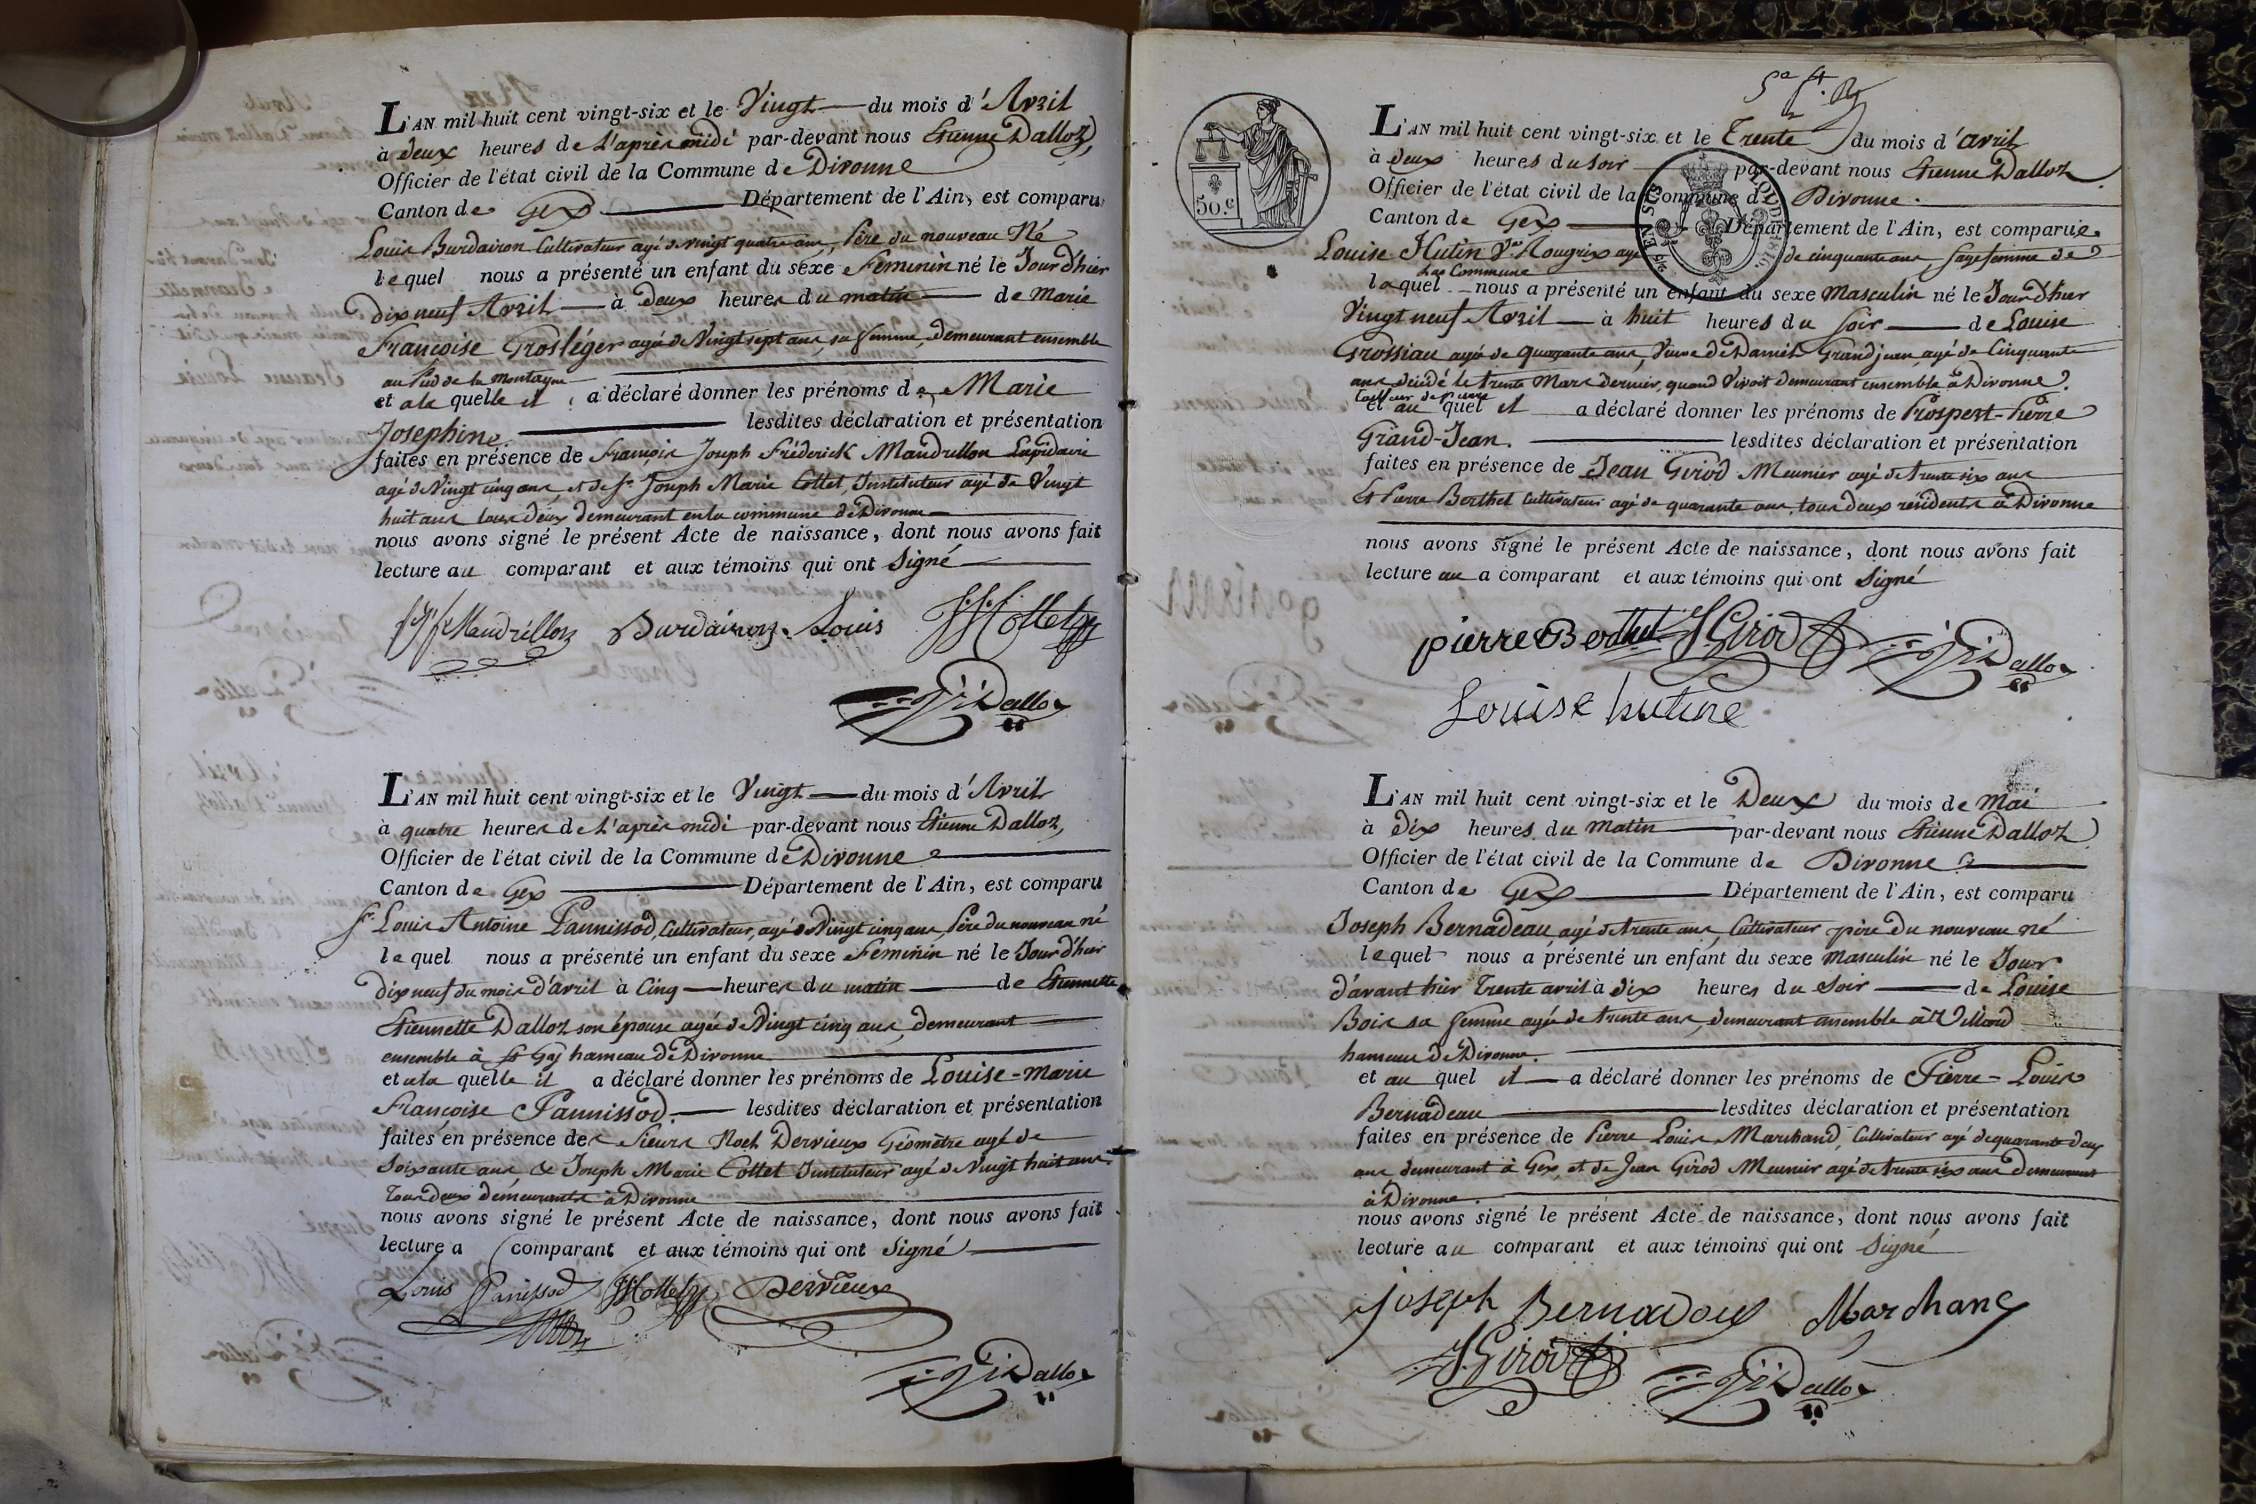 L'AN mil huit cent vingt-six et le Vingt du mois d'Avril
à deux heures de l'après midi par-devant nous Etienne Dalloz,
Officier de l'état civil de la Commune de Divonne
Canton de Gex Département de l'Ain, est comparu
Louis Burdairon Cultivateur agé de vingt quatre ans, Père du nouveau Né
lequel nous a présenté un enfant du sexe Feminin né le Jour d'hier
dix neuf Avril à deux heures du matin de Marie
Françoise Grosléger agée de Vingt sept ans, sa femme, demeurant ensemble
au Pied de la Montagne
et a la quelle il a déclaré donner les prénoms de Marie
Josephine. lesdites déclaration et présentation
faites en présence de François Joseph Fréderick Mandrillon Lapidaire
agé de Vingt cinq ans, et de Sr. Joseph Marie Collet, Instituteur agé de Vingt
huit ans tous deux demeurant en la commune de Divonne
nous avons signé le présent Acte de naissance, dont nous avons fait
lecture au comparant et aux témoins qui ont Signé
Mandrillon Burdairon Louis Collet
Dalloz
L'AN mil huit cent vingt-six et le Vingt du mois d'Avril
à quatre heures de l'après midi par-devant nous Etienne Dalloz,
Officier de l'état civil de la Commune de Divonne
Canton de Gex Département de l'Ain, est comparu
Sr. Louis Antoine Pannissod, Cultivateur, agé de Vingt cinq ans Père du nouveau né
lequel nous a présenté un enfant du sexe Feminin né le Jour d'hier
dix neuf du mois d'avril à Cinq heures du matin de Etiennette
Etiennette Dalloz son épouse agée de Vingt cinq ans, demeurant
ensemble à St Gix hameau de Divonne
et a la quelle il a déclaré donner les prénoms de Louise-Marie
Françoise Pannissod. lesdites déclaration et présentation
faites en présence des Sieurs Noel Dervieux Géomètre agé de
Soixante ans, & Joseph Marie Collet Instituteur agé de Vingt huit ans.
Tous deux demeurants à Divonne
nous avons signé le présent Acte de naissance, dont nous avons fait
lecture a comparant et aux témoins qui ont Signé
Louis Panissod Collet Dervieux
Dalloz
50.c
L'AN mil huit cent vingt-six et le Trente du mois d'avril
à deux heures du soir par-devant nous Etienne Dalloz
Officier de l'état civil de la Commune de Divonne.
Canton de Gex Département de l'Ain, est comparue
Louise Hutin Ve. Rougrix agée de cinquante ans, Sage femme de
Lae Commune
laquel nous a présenté un enfant du sexe Masculin né le Jour d'hier
Vingt neuf Avril à huit heures du Soir de Louise
Grossiau agée de quarante ans, Veuve de Daniel Grandjean, agé de Cinquante
ans décédé le trente Mars dernier, quand Vivoit demeurant ensemble à Divonne.
tailleur de pierre
et au quel il a déclaré donner les prénoms de Prospert-Pierre
Grand-Jean. lesdites déclaration et présentation
faites en présence de Jean Girod Meunier agé de trente six ans
Et Pierre Berthet Cultivateur agé de quarante ans, tous deux résidents à Divonne
nous avons signé le présent Acte de naissance, dont nous avons fait
lecture au a comparant et aux témoins qui ont Signé
pierre Berthet J Girod Dalloz
Louise hutine
L'AN mil huit cent vingt-six et le Deux du mois de Mai
à dix heures du Matin par-devant nous Etienne Dalloz
Officier de l'état civil de la Commune de Divonne
Canton de Gex Département de l'Ain, est comparu
Joseph Bernadeau, agé de trente ans, Cultivateur père du nouveau né
lequel nous a présenté un enfant du sexe Masculin né le Jour
d'avant hier Trente avril à dix heures du Soir de Louise
Bois sa femme agée de trente ans, demeurant ensemble à Villard
hameau de Divonne.
et au quel il a déclaré donner les prénoms de Pierre-Louis
Bernadeau lesdites déclaration et présentation
faites en présence de Pierre Louis Marchand, Cultivateur agé de quarante deux
ans, demeurant à Gex, et de Jean Girod Meunier agé de trente six ans demeurant
à Divonne.
nous avons signé le présent Acte de naissance, dont nous avons fait
lecture au comparant et aux témoins qui ont Signé
Joseph Bernadoux Marchand
J Girod Dalloz